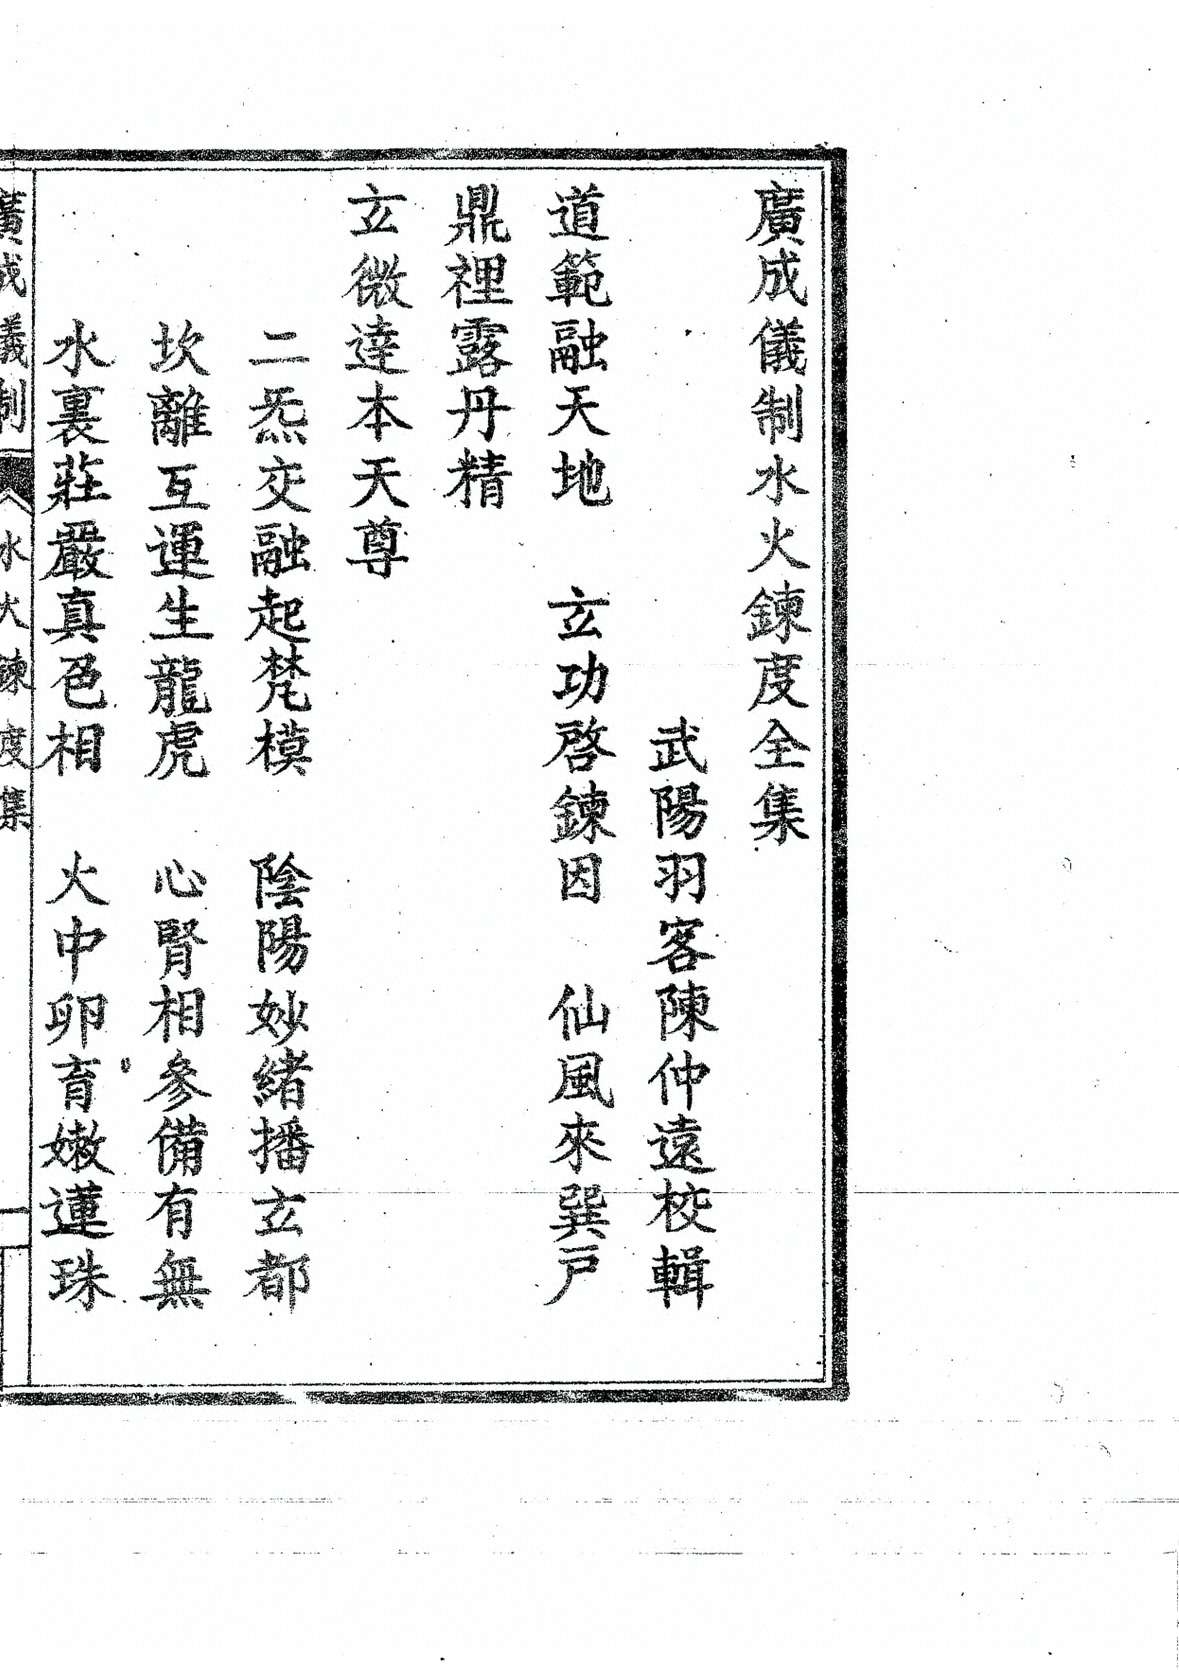 廣成儀制水火鍊度全集
武陽羽客陳仲遠校輯
道範融天地　玄功啓鍊因　仙風來巽戸
鼎裡露丹精
玄微達本天尊
二炁交融起梵模　陰陽妙緒播玄都
坎離互運生龍虎　心腎相參備有無
水裏莊嚴真色相　火中卵育嫩蓮珠
廣成儀制　水火鍊度集　一